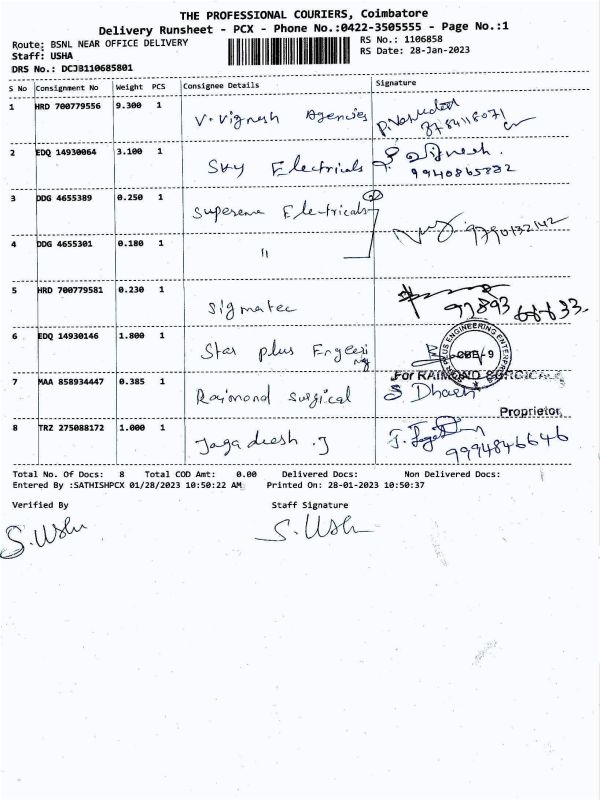 THE PROFESSIONAL COURIERS, Coimbatore
Delivery Runsheet - PCX - Phone No.:0422-3505555 - Page No.:1
Route: BSNL NEAR OFFICE DELIVERY RS No.: 1106858
Staff: USHA RS Date: 28-Jan-2023
DRS No.: DCJB110685801
S No Consignment No Weight PCS Consignee Details Signature
1 HRD 700779556 9.300 1 V. Vignesh Agencies
2 EDQ 14930064 3.100 1 Sky Electricals
9940865882
3 DDG 4655389 0.250 1 Supereme Electricals
9790132142
4 DDG 4655301 0.180 1 "
5 HRD 700779581 0.230 1 Sigmatec
6 EDQ 14930146 1.800 1 Star plus Engeeri
ng
STAR PLUS ENGINEERING ENTERPRISES
CBE-9
For RAIMOND SURGICALS
7 MAA 858934447 0.385 1 Raimond Surgical S Dhash
Proprietor
8 TRZ 275088172 1.000 1 Jagadeesh .J
9994846646
Total No. Of Docs: 8 Total COD Amt: 0.00 Delivered Docs: Non Delivered Docs:
Entered By :SATHISHPCX 01/28/2023 10:50:22 AM Printed On: 28-01-2023 10:50:37
Verified By Staff Signature
S. Ush S. Ush